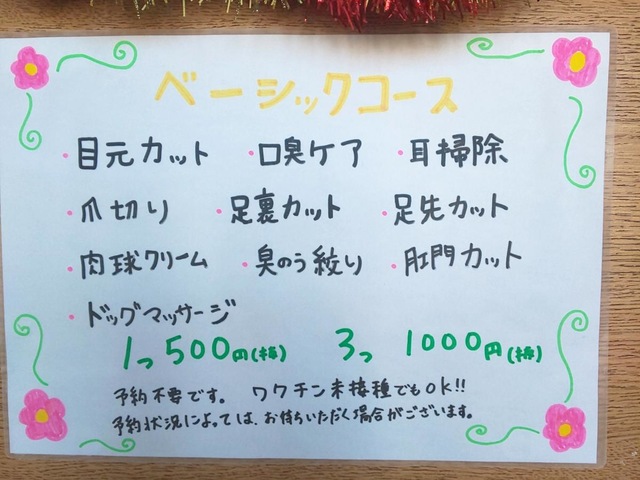 ベーシックコース
・目元カット ・口臭ケア ・耳掃除
・爪切り ・足裏カット ・足先カット
・肉球クリーム ・臭のう絞り ・肛門カット
・ドッグマッサージ
1つ 500円(税抜) 3つ 1000円(税抜)
予約不要です。 ワクチン未接種でもOK!!
予約状況によっては、お待ちいただく場合がございます。